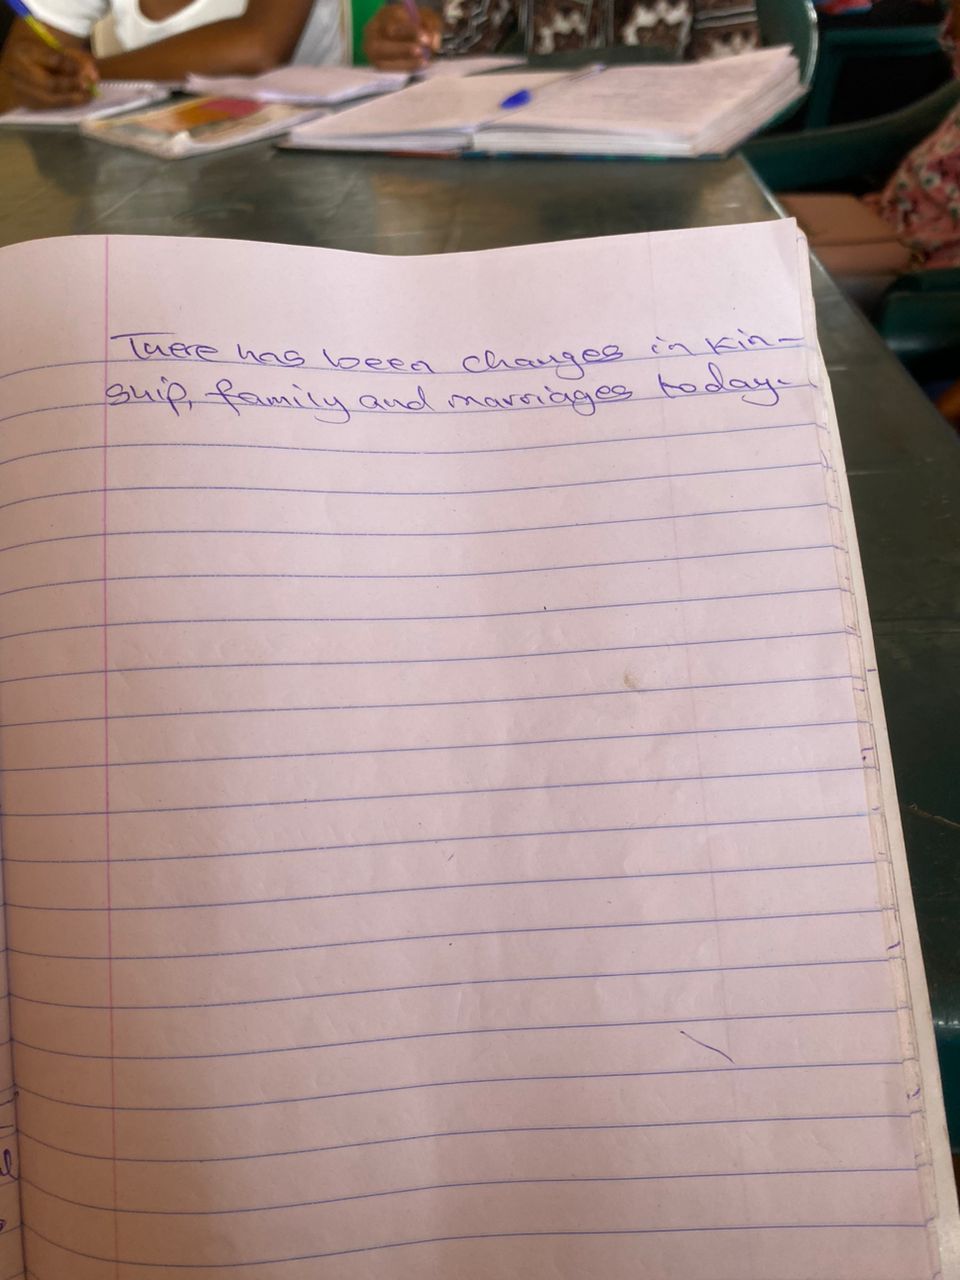 There has been changes in kin-
ship, family and marriages today.